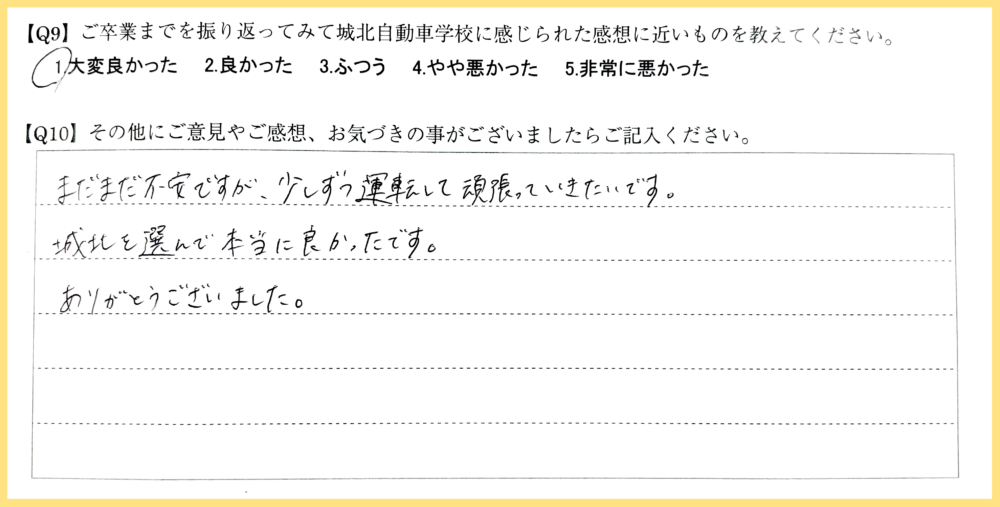 【Q9】ご卒業までを振り返ってみて城北自動車学校に感じられた感想に近いものを教えてください。
1.大変良かった 2.良かった 3.ふつう 4.やや悪かった 5.非常に悪かった
【Q10】その他にご意見やご感想、お気づきの事がございましたらご記入ください。
まだまだ不安ですが、少しずつ運転して頑張っていきたいです。
城北を選んで本当に良かったです。
ありがとうございました。